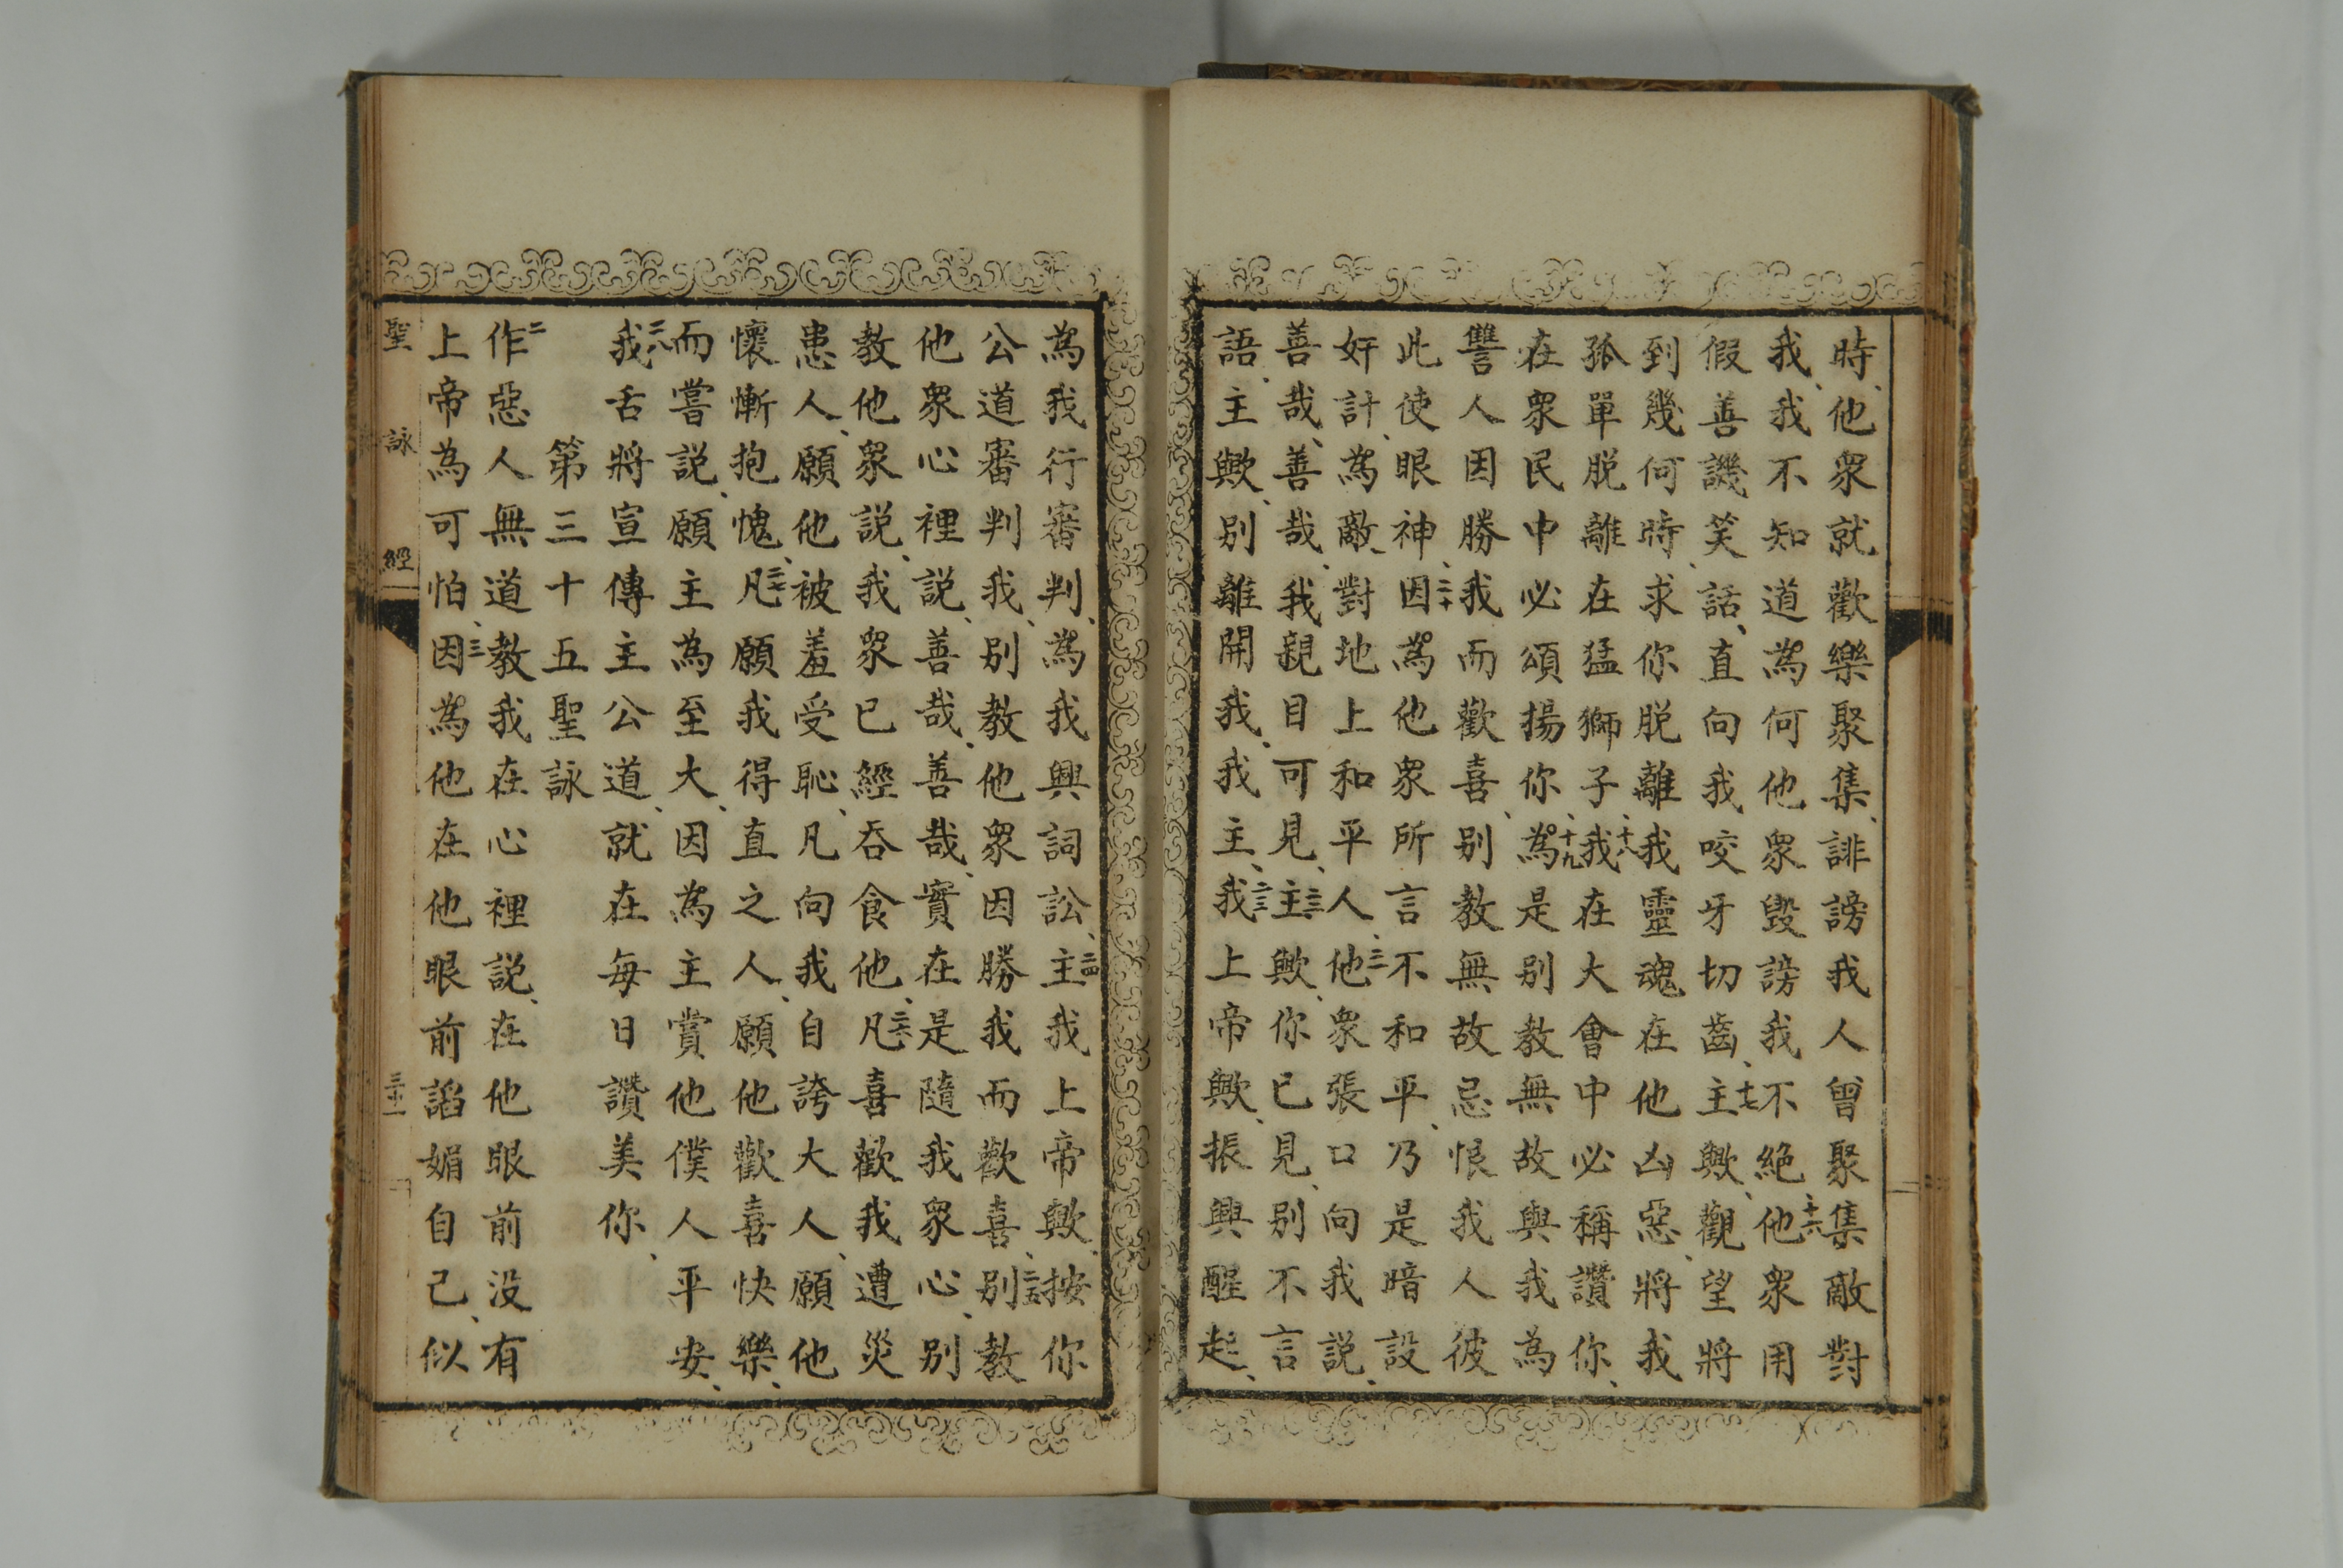 時、他衆就歡樂聚集、誹謗我人曾聚集敵對
我、我不知道為何他衆毀謗我不絕十六他衆用
假善譏笑話、直向我咬牙切齒、十七主歟、觀望將
到幾何時、求你脫離我靈魂在他凶惡、將我
孤單脫離在猛獅子、十八我在大會中必稱讚你、
在衆民中必頌揚你、十九為是別教無故與我為
讐人因勝我而歡喜、別教無故忌恨我人彼
此使眼神、二十因為他衆所言不和平、乃是暗設
奸計、為敵、對地上和平人、二一他衆張口向我說、
善哉、善哉、我親目可見、二二主歟、你已見、別不言
語、主歟、別離開我、我主、二三我上帝歟、振興醒起、
為我行審判、為我興詞訟、二四主我上帝歟、按你
公道審判我、別教他衆因勝我而歡喜、二五別教
他衆心裡說、善哉、善哉、實在是隨我衆心、別
教他衆說、我衆已經吞食他、二六凡喜歡我遭災
患人、願他被羞受恥、凡向我自誇大人、願他
懷慚抱愧、二七凡願我得直之人、願他歡喜快樂、
而嘗說、願主為至大、因為主賞他僕人平安、
二八我舌將宣傳主公道、就在每日讚美你、
第三十五聖詠
二作惡人無道教我在心裡說、在他眼前没有
上帝為可怕、三因為他在他眼前諂媚自己、似
聖詠經